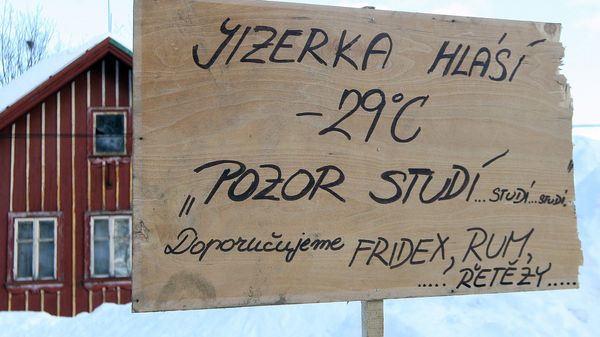 JIZERKA HLÁSÍ
-29°C
„POZOR STUDÍ...STUDÍ...STUDÍ..
Doporučujeme FRIDEX, RUM,
.....ŘETĚZY.....